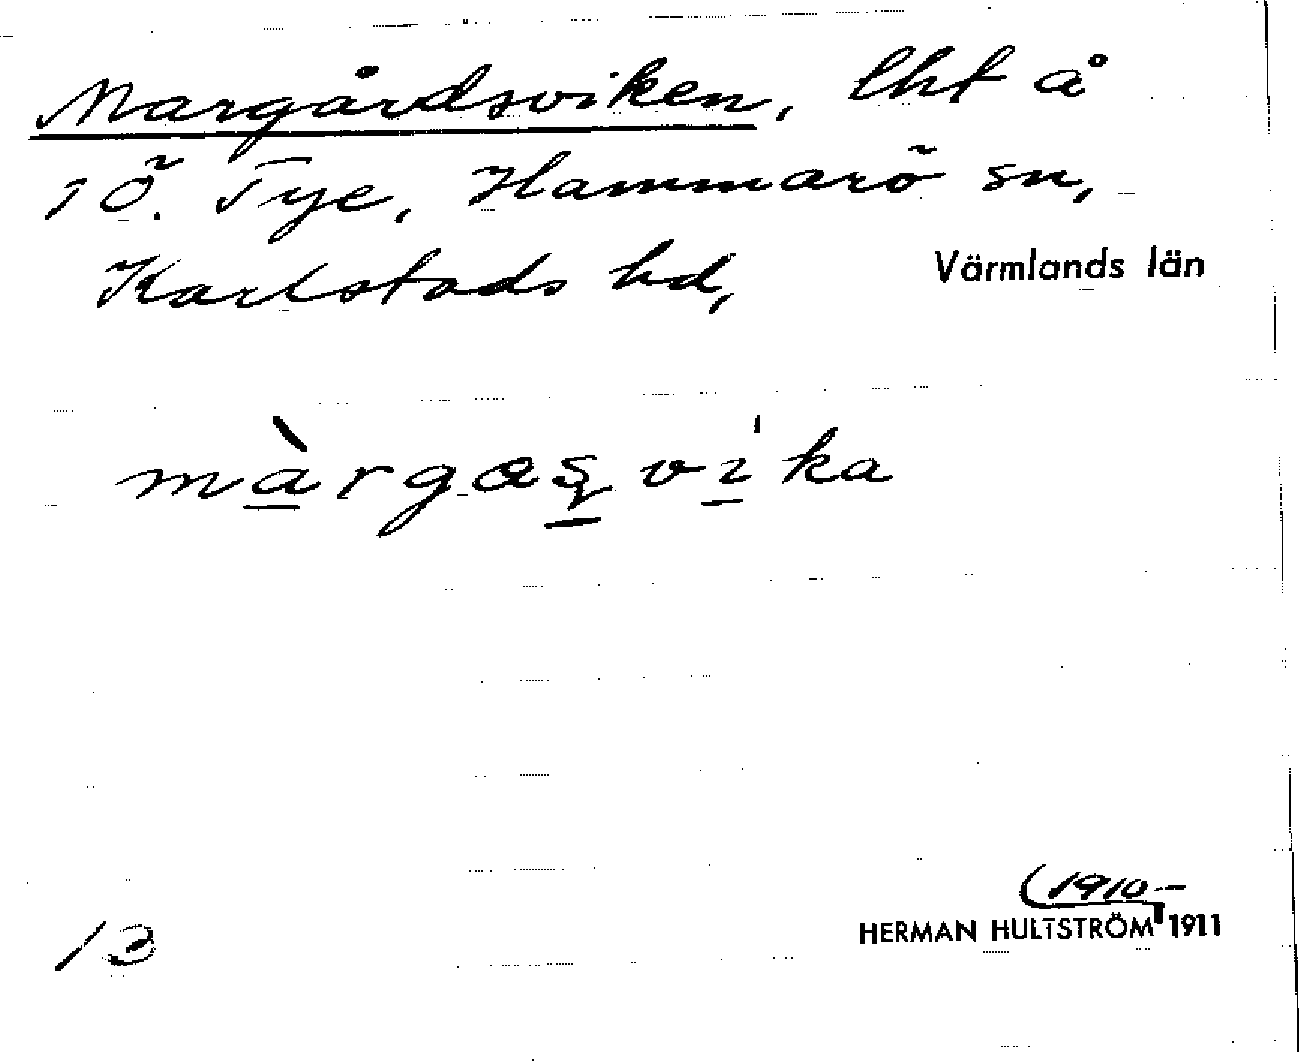 Margårdsviken, lht å
1 Ö. Tye, Hammarö sn,
Karlstads hd, Värmlands län
màrgas̱ vı̍ka
(1910–
HERMAN HULTSTRÖM 1911
13